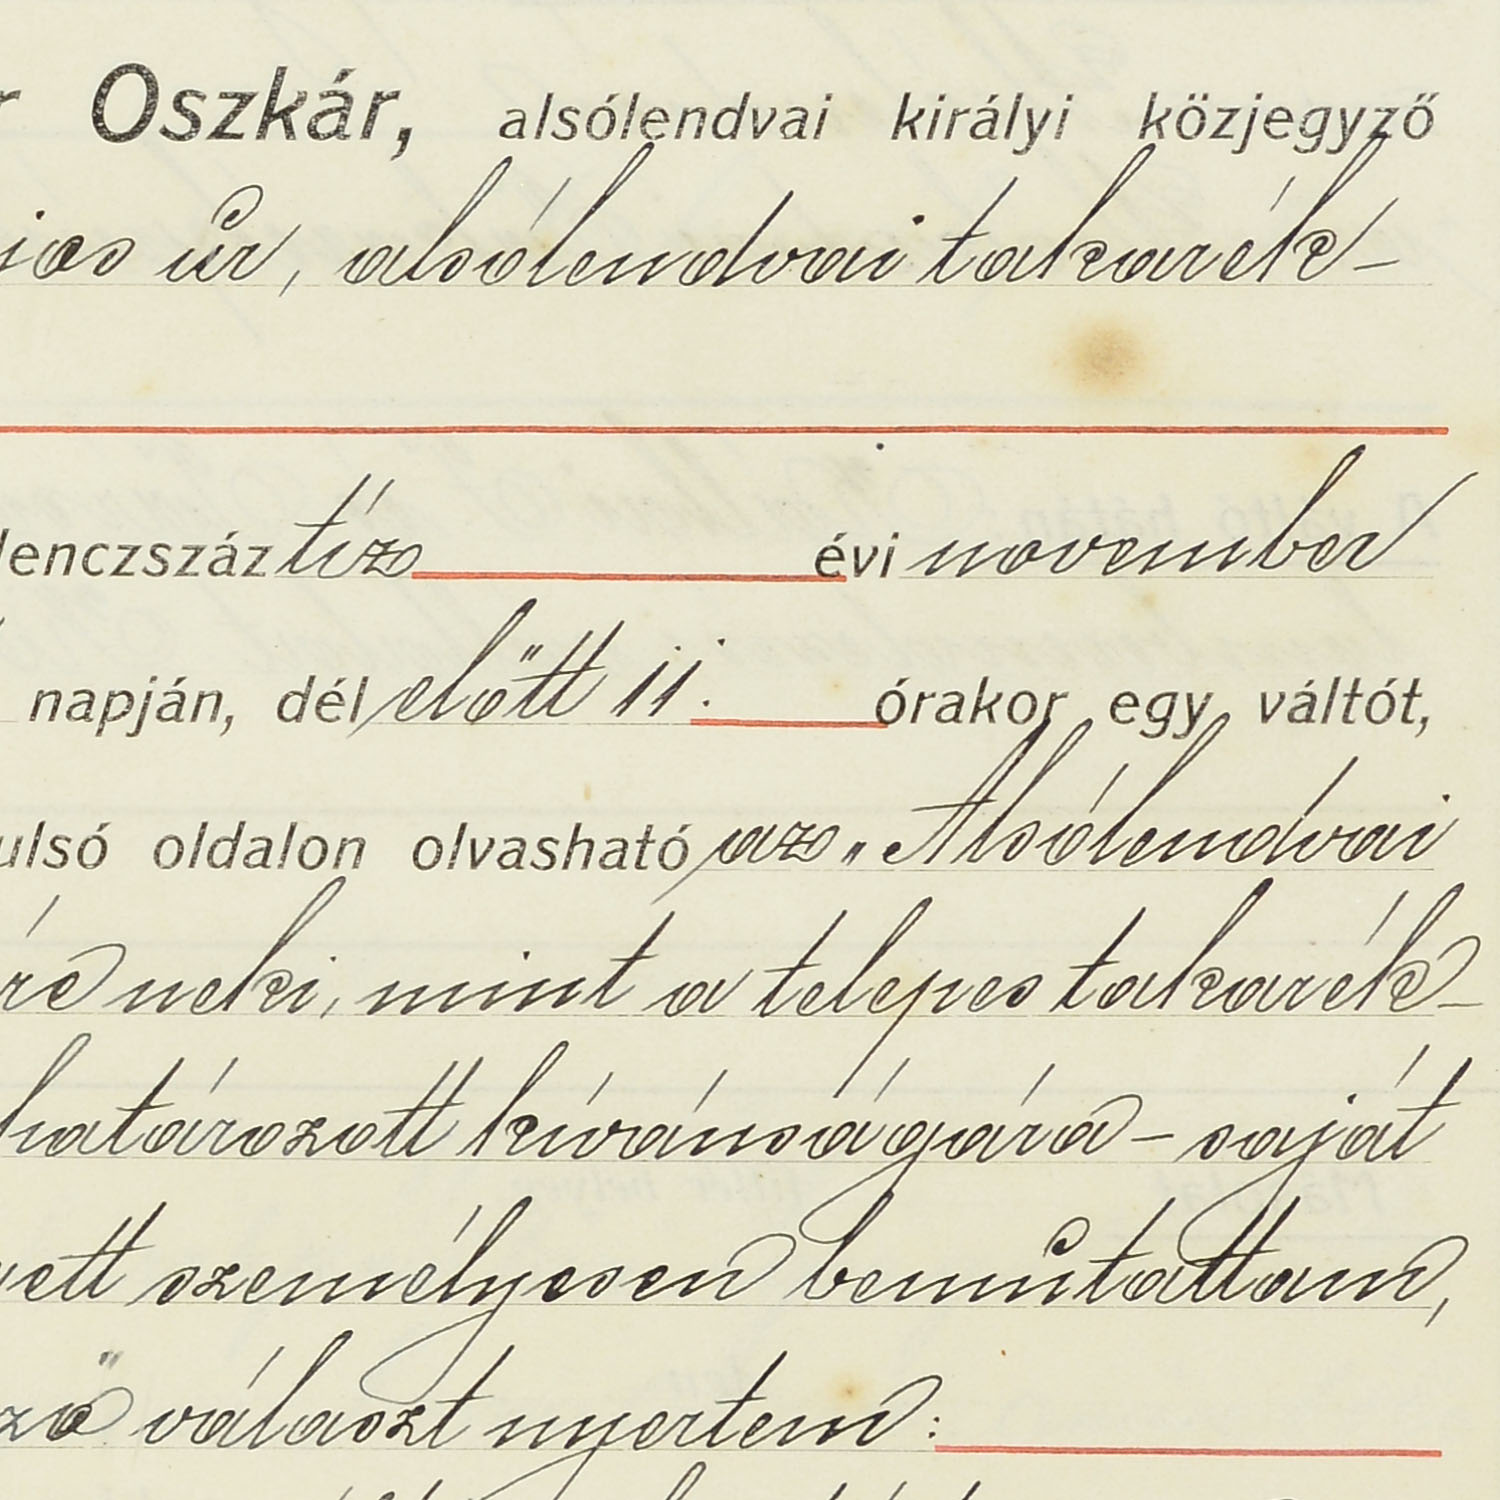 r Oszkár, alsólendvai királyi közjegyző
jos úr, alsólendvai takarék-
lenczszáz tíz évi november
napján, dél előtt 11. órakor egy váltót,
ulsó oldalon olvasható az „Alsólendvai
re neki, mint a telepes takarék-
határozott kívánságára - saját
vett személyesen bemutattam,
ző választ nyertem: